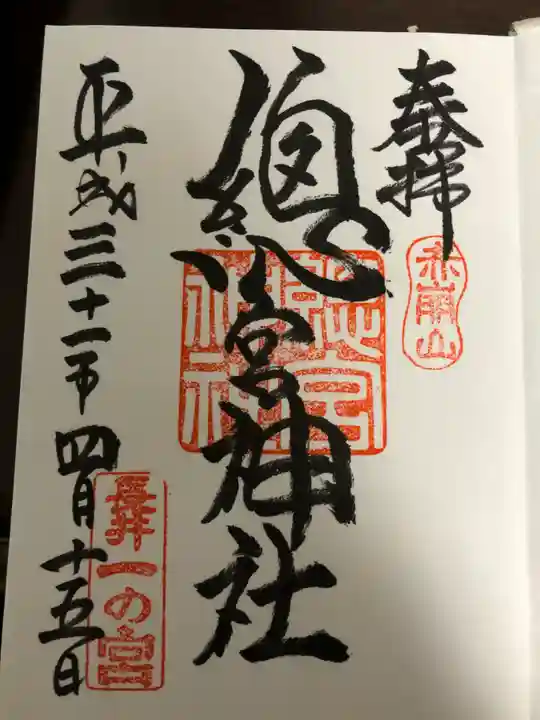 奉拝
赤雨山
總宮神社
総宮神社
平成三十一年四月十五日
長井一の宮